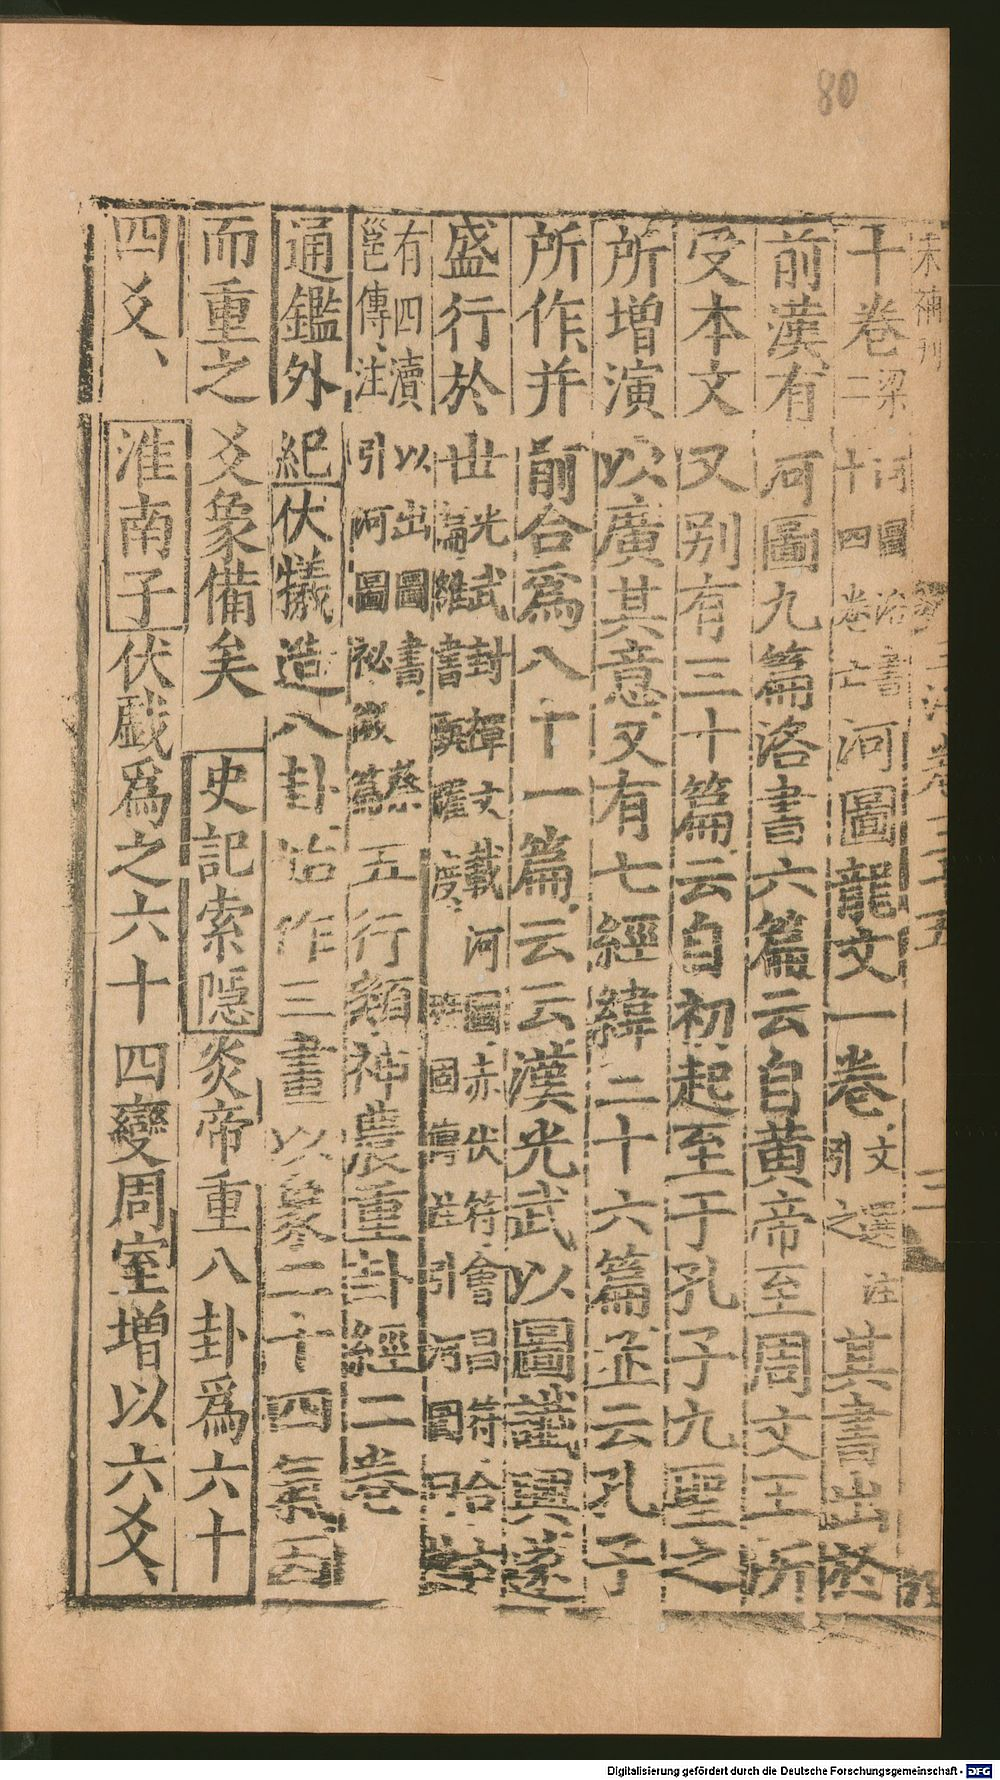 80
未補刊
玉海卷三十五 三
十卷 梁河圖洛書二十四卷亡 河圖龍文一卷 文選注引之 其書出於
前漢有河圖九篇洛書六篇云自黄帝至周文王所
受本文又别有三十篇云自初起至于孔子九聖之
所增演以廣其意又有七經緯三十六篇並云孔子
所作并前合爲八十一篇云云漢光武以圖讖興遂
盛行於世 光武封禪文載河圖赤伏符會昌符合 引河圖
有四瀆 以出圖書 蔡邕傳注引河圖祕徵篇 五行類神農重卦經二卷
通鑑外紀伏犧造八卦始作三畫以象二十四氣因
而重之爻象備矣 史記索隱炎帝重八卦爲六十
四爻、淮南子伏戲爲之六十四變周室增以六爻、
Digitalisierung gefördert durch die Deutsche Forschungsgemeinschaft - DFG